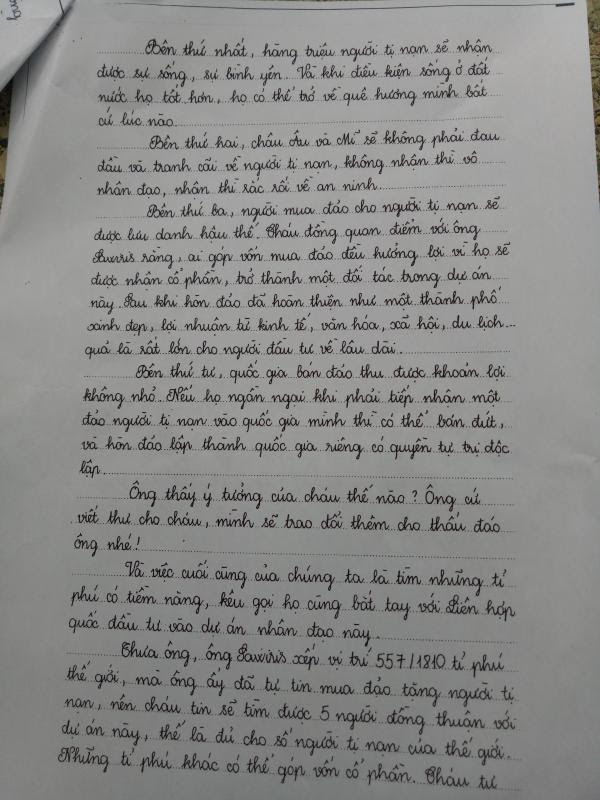 Bên thứ nhất, hàng triệu người tị nạn sẽ nhận
được sự sống, sự bình yên. Và khi điều kiện sống ở đất
nước họ tốt hơn, họ có thể trở về quê hương mình bất
cứ lúc nào.
Bên thứ hai, châu Âu và Mĩ sẽ không phải đau
đầu và tranh cãi về người tị nạn, không nhận thì vô
nhân đạo, nhận thì rắc rối về an ninh.
Bên thứ ba, người mua đảo cho người tị nạn sẽ
được lưu danh hậu thế. Cháu đồng quan điểm với ông
Sawiris rằng, ai góp vốn mua đảo đều hưởng lợi vì họ sẽ
được nhận cổ phần, trở thành một đối tác trong dự án
này. Sau khi hòn đảo đã hoàn thiện như một thành phố
xinh đẹp, lợi nhuận từ kinh tế, văn hóa, xã hội, du lịch...
quả là rất lớn cho người đầu tư về lâu dài.
Bên thứ tư, quốc gia bán đảo thu được khoản lợi
không nhỏ. Nếu họ ngần ngại khi phải tiếp nhận một
đảo người tị nạn vào quốc gia mình thì có thể bán đứt,
và hòn đảo lập thành quốc gia riêng có quyền tự trị độc
lập.
Ông thấy ý tưởng của cháu thế nào? Ông cứ
viết thư cho cháu, mình sẽ trao đổi thêm cho thấu đáo
ông nhé!
Và việc cuối cùng của chúng ta là tìm những tỉ
phú có tiềm năng, kêu gọi họ cùng bắt tay với Liên hợp
quốc đầu tư vào dự án nhân đạo này.
Thưa ông, ông Sawiris xếp vị trí 557/1810 tỉ phú
thế giới, mà ông ấy đã tự tin mua đảo tặng người tị
nạn, nên cháu tin sẽ tìm được 5 người đồng thuận với
dự án này, thế là đủ cho số người tị nạn của thế giới.
Những tỉ phú khác có thể góp vốn cổ phần. Cháu tự